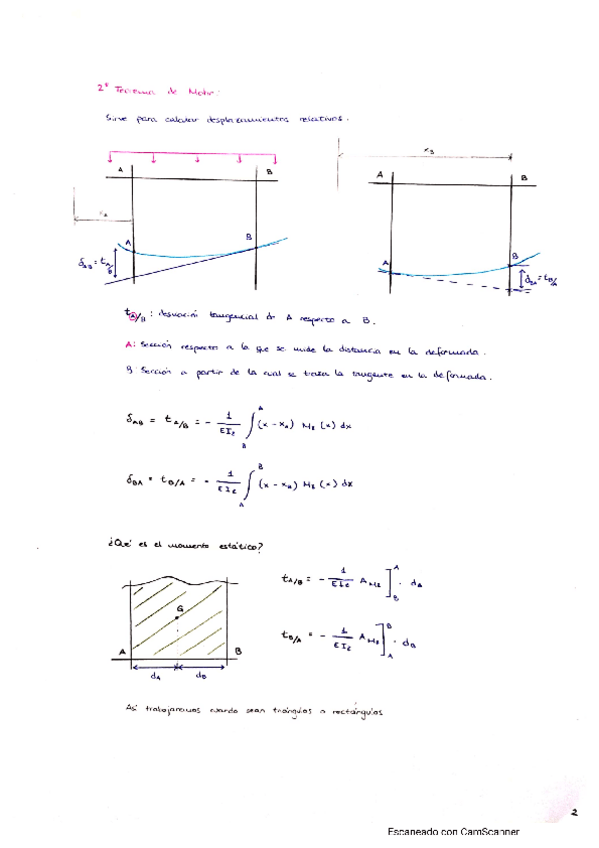 2º Teorema de Mohr:
Sirve para calcular desplazamientos relativos.
A B
xA
A B
δAB = tA/B
xB
A B
A B
δBA = tB/A
tA/B : desviación tangencial de A respecto a B.
A: Sección respecto a la que se mide la distancia en la deformada.
B: Sección a partir de la cual se traza la tangente en la deformada.
δAB = tA/B = - 1/EIz ∫BA (x - xA) Mz (x) dx
δBA = tB/A = - 1/EIz ∫AB (x - xB) Mz (x) dx
¿Qué es el momento estático?
G
A B
dA dB
tA/B = - 1/EIz AMz ]BA · dA
tB/A = - 1/EIz AMz ]AB · dB
Así trabajaremos cuando sean triángulos o rectángulos
2
Escaneado con CamScanner